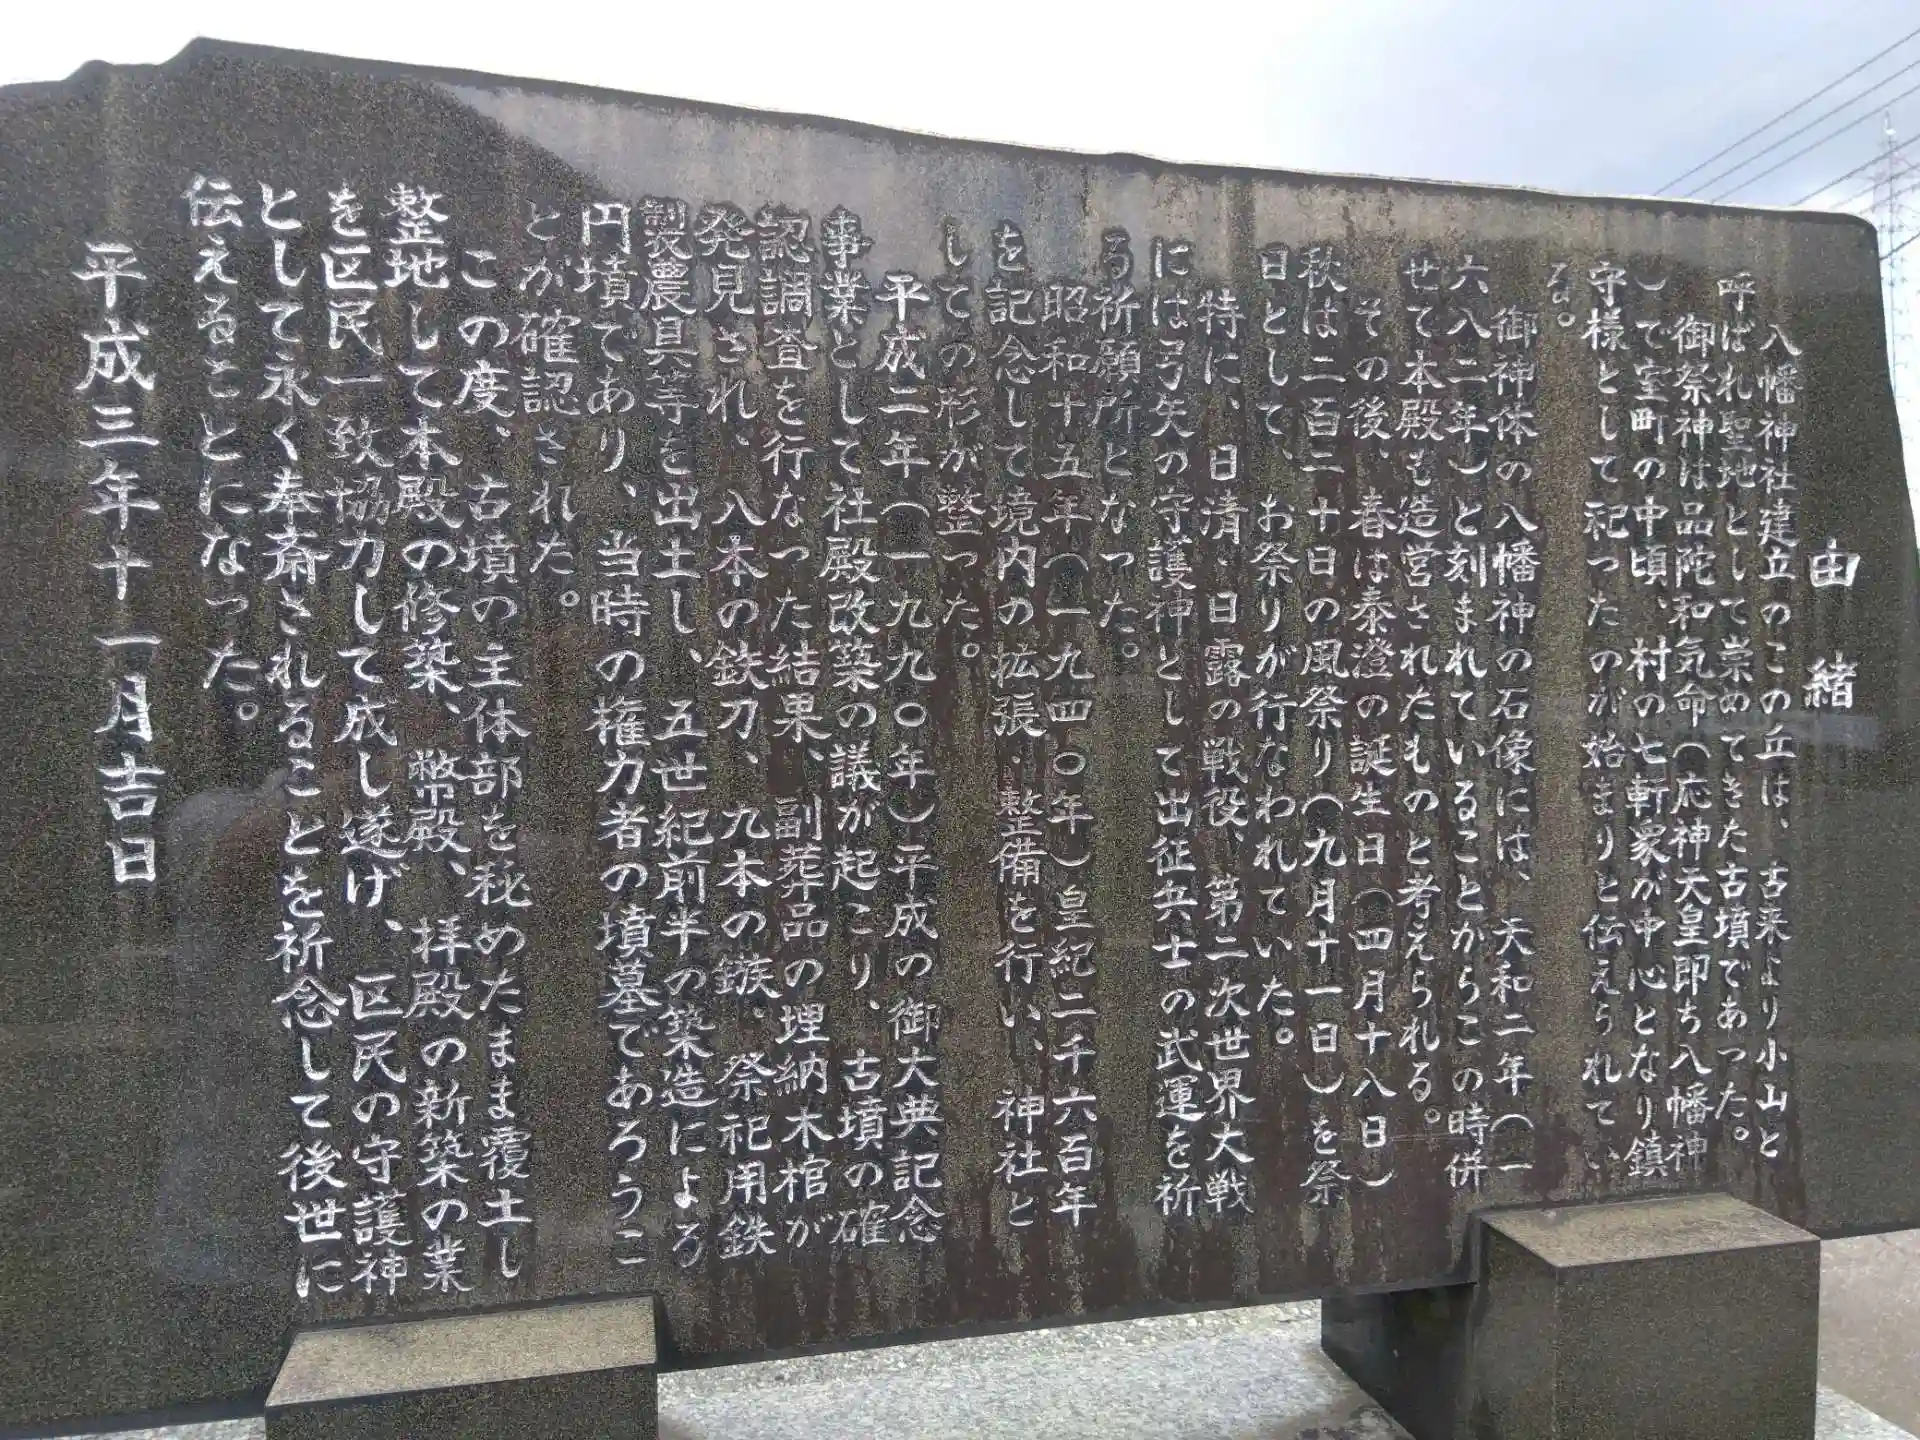 由緒
八幡神社建立のこの丘は、古来より小山と
呼ばれ聖地として崇めてきた古墳であった。
御祭神は品陀和気命（応神天皇即ち八幡神
）で室町の中頃、村の七軒衆が中心となり鎮
守様として祀ったのが始まりと伝えられてい
る。
御神体の八幡神の石像には、天和二年（一
六八二年）と刻まれていることからこの時併
せて本殿も造営されたものと考えられる。
その後、春は泰澄の誕生日（四月十八日）
秋は二百二十日の風祭り（九月十一日）を祭
日として、お祭りが行なわれていた。
特に、日清、日露の戦役、第二次世界大戦
には弓矢の守護神として出征兵士の武運を祈
る祈願所となった。
昭和十五年（一九四〇年）皇紀二千六百年
を記念して境内の拡張・整備を行い、神社と
しての形が整った。
平成二年（一九九〇年）平成の御大典記念
事業として社殿改築の議が起こり、古墳の確
認調査を行なった結果、副葬品の埋納木棺が
発見され、八本の鉄刀、九本の鏃、祭祀用鉄
製農具等を出土し、五世紀前半の築造による
円墳であり、当時の権力者の墳墓であろうこ
とが確認された。
この度、古墳の主体部を秘めたまま覆土し
整地して本殿の修築、幣殿、拝殿の新築の業
を区民一致協力して成し遂げ、区民の守護神
として永く奉斎されることを祈念して後世に
伝えることになった。
平成三年十一月吉日